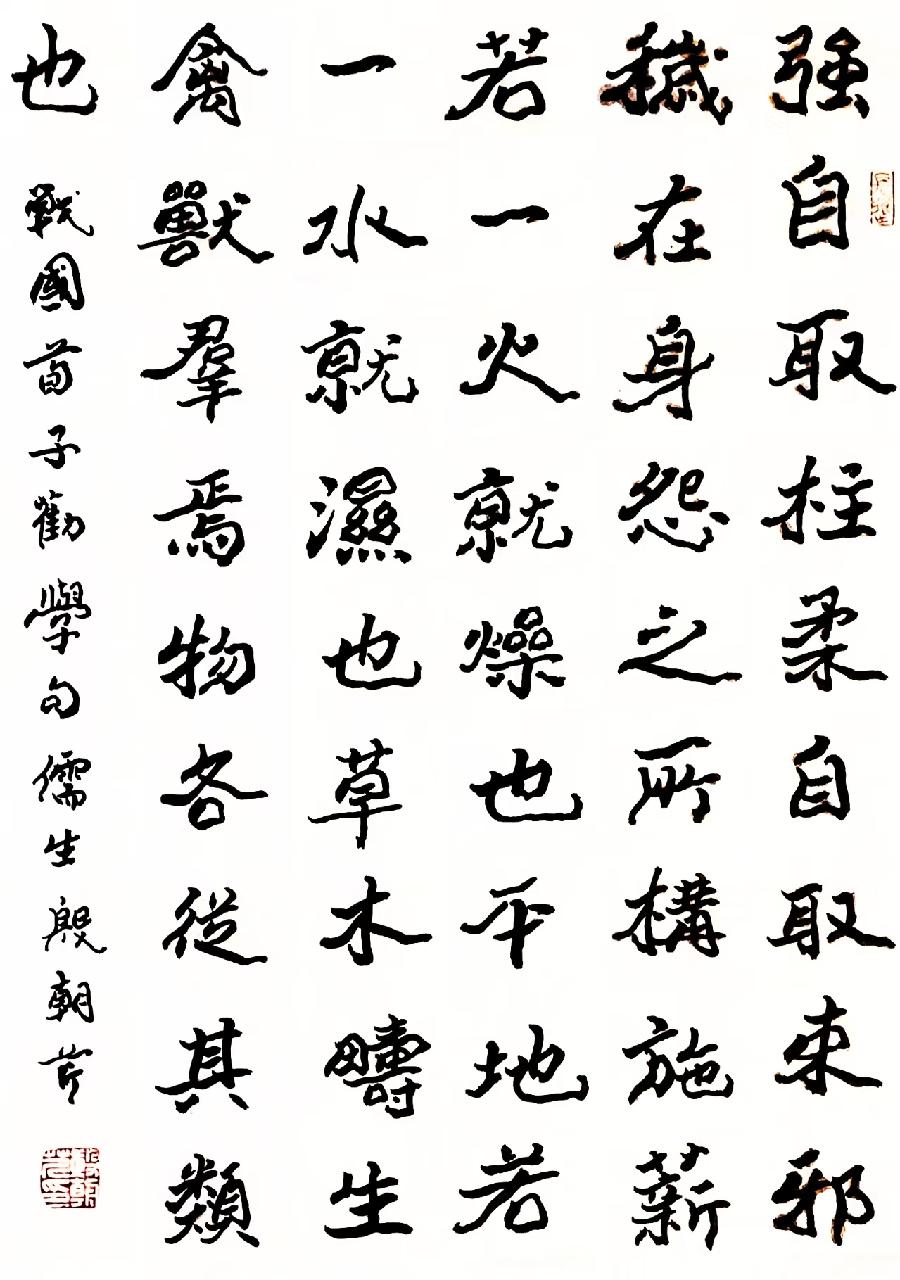 強自取柱柔自取束邪
穢在身怨之所構施薪
若一火就燥也平地若
一水就濕也草木疇生
禽獸羣焉物各從其類
也 戰國荀子勸學句儒生殷朝芹